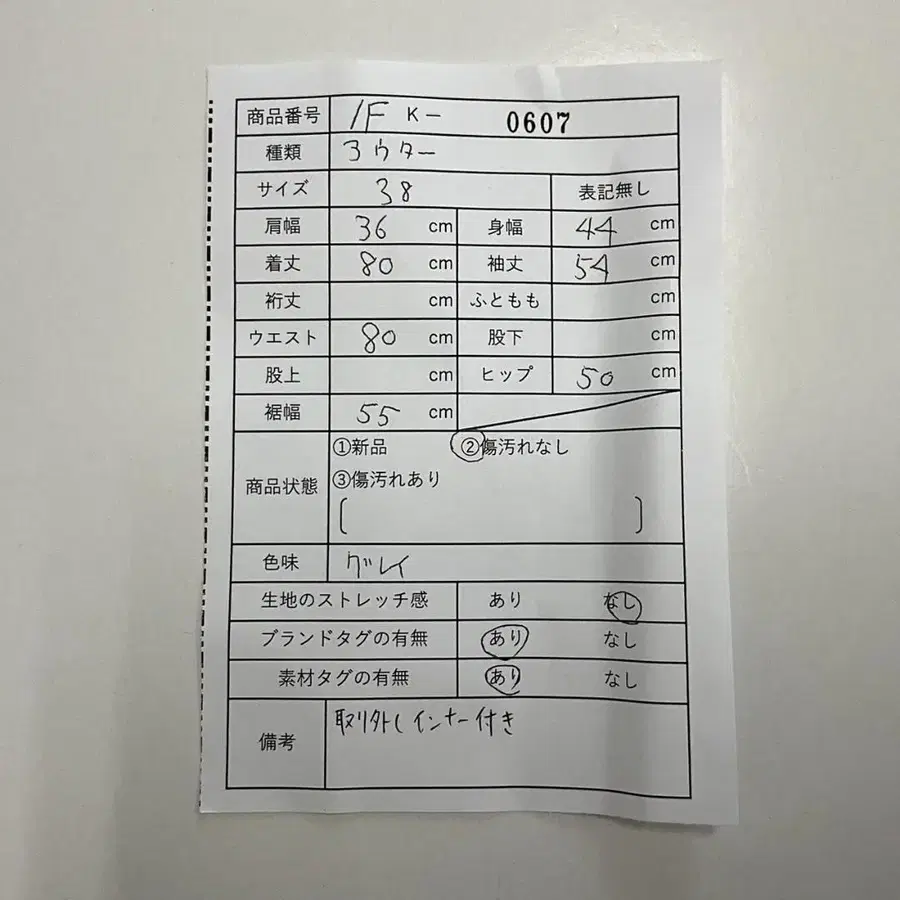 商品番号 1F K- 0607
種類 アウター
サイズ 38 表記無し
肩幅 36 cm 身幅 44 cm
着丈 80 cm 袖丈 54 cm
裄丈 cm ふともも cm
ウエスト 80 cm 股下 cm
股上 cm ヒップ 50 cm
裾幅 55 cm
①新品 ②傷汚れなし
商品状態 ③傷汚れあり
色味 グレイ
生地のストレッチ感 あり なし
ブランドタグの有無 あり なし
素材タグの有無 あり なし
備考 取り外しインナー付き